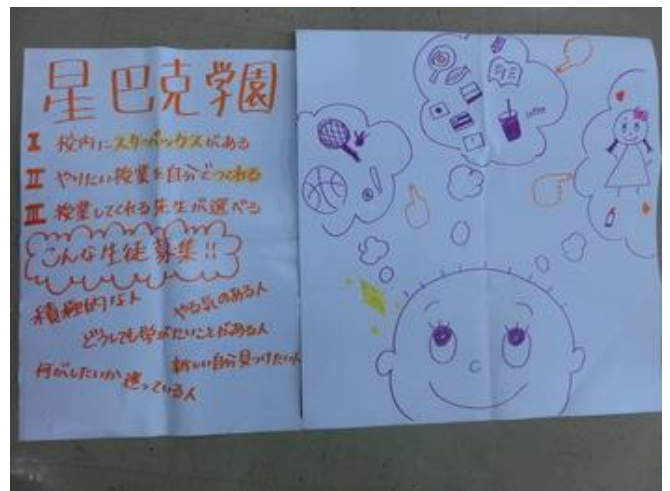 星巴克学園
I 校内にスターバックスがある
II やりたい授業を自分でつくれる
III 授業してくれる先生が選べる
こんな生徒募集!!
積極的な人
やる気のある人
どうしても学びたいことがある人
新しい自分見つけたい人
何がしたいか迷っている人
coffee